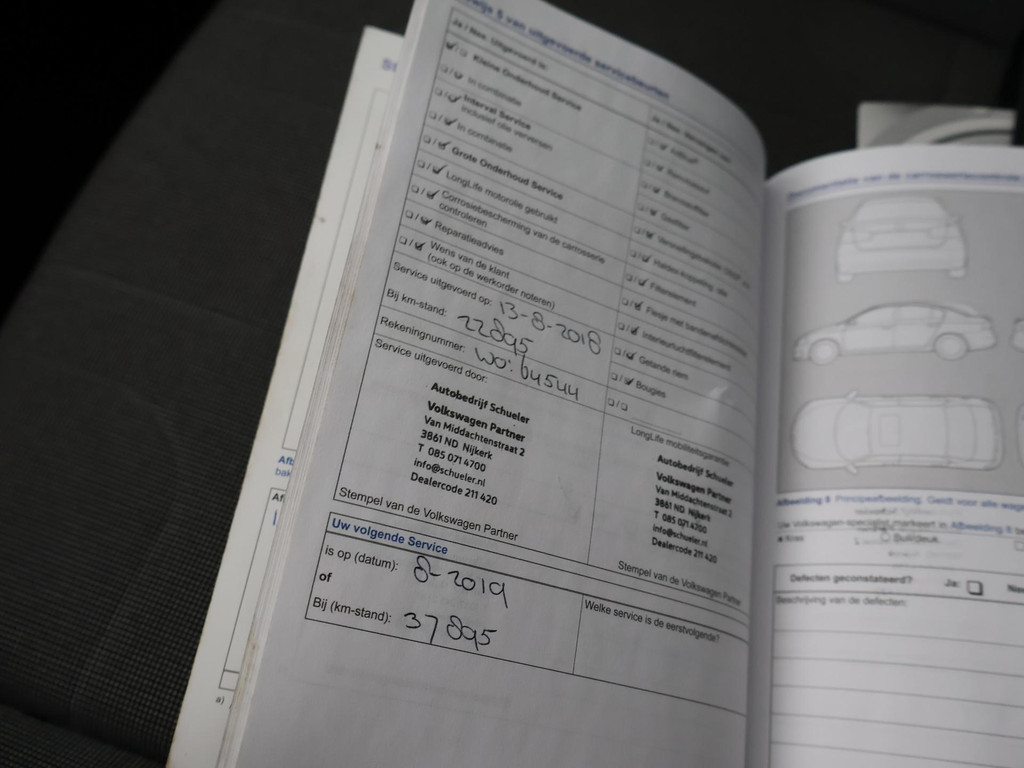 5 van uitgevoerde servicebeurten
Ja / Nee Uitgevoerd is:
Kleine Onderhoud Service
In combinatie
Interval Service
inclusief olie verversen
In combinatie
Grote Onderhoud Service
LongLife motorolie gebruikt
Corrosiebescherming van de carrosserie
controleren
Reparatieadvies
Wens van de klant
(ook op de werkorder noteren)
Service uitgevoerd op: 13-8-2018
Bij km-stand: 22895
Rekeningnummer: wo: 64544
Service uitgevoerd door:
Autobedrijf Schueler
Volkswagen Partner
Van Middachtenstraat 2
3861 ND Nijkerk
T 085 071 4700
info@schueler.nl
Dealercode 211 420
Stempel van de Volkswagen Partner
Ja / Nee
Interieurluchtfilterelement
Getande riem
Bougies
LongLife mobiliteitsgarantie
Autobedrijf Schueler
Volkswagen Partner
Van Middachtenstraat 2
3861 ND Nijkerk
T 085 071 4700
info@schueler.nl
Dealercode 211 420
Stempel van de Volkswagen Partner
Uw volgende Service
is op (datum): 8-2019
of
Bij (km-stand): 37895
Welke service is de eerstvolgende?
a)
Afbeelding 5 Principeafbeelding. Geldt voor alle
Uw Volkswagen-specialist markeert in Afbeelding 5
Kras
Buil/deuk
Defecten geconstateerd? Ja:
Beschrijving van de defecten: